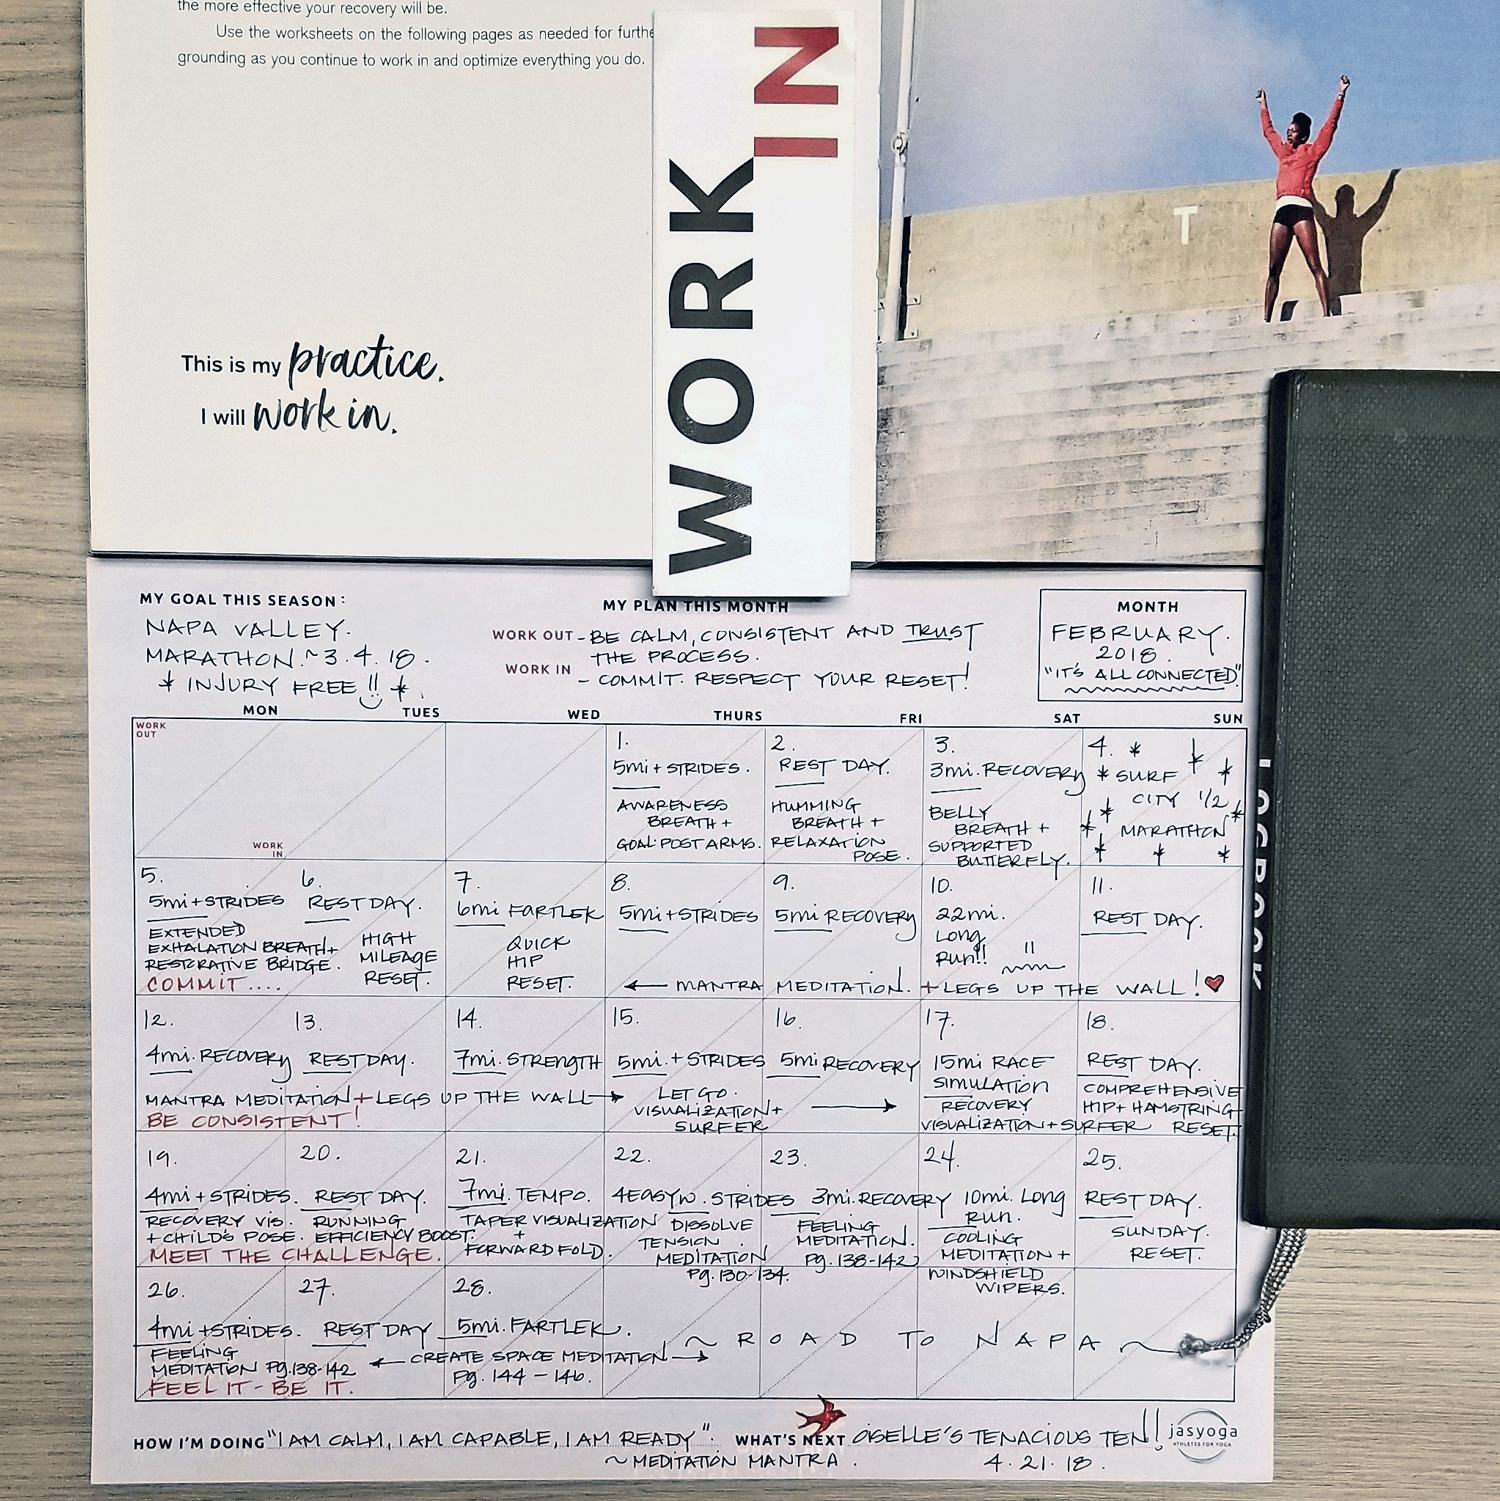 the more effective your recovery will be.
Use the worksheets on the following pages as needed for furthe
grounding as you continue to work in and optimize everything you do.
This is my practice.
I will work in.
WORK IN
T
LOGBOOK
MY GOAL THIS SEASON:
NAPA VALLEY.
MARATHON.~3.4.18.
* INJURY FREE!! *.
MY PLAN THIS MONTH
WORK OUT - BE CALM, CONSISTENT AND TRUST
THE PROCESS.
WORK IN - COMMIT. RESPECT YOUR RESET!
MONTH
FEBRUARY.
2018.
"IT'S ALL CONNECTED"
MON TUES WED THURS FRI SAT SUN
WORK
OUT
WORK
IN
1.
5mi + STRIDES.
AWARENESS
BREATH +
GOAL POST ARMS.
2.
REST DAY.
HUMMING
BREATH +
RELAXATION
POSE.
3.
3mi. RECOVERY
BELLY
BREATH +
SUPPORTED
BUTTERFLY.
4. *
* SURF
CITY 1/2
MARATHON
5.
5mi + STRIDES
EXTENDED
EXHALATION BREATH +
RESTORATIVE BRIDGE.
COMMIT....
6.
REST DAY.
HIGH
MILEAGE
RESET.
7.
6mi FARTLEK
QUICK
HIP
RESET.
8.
5mi + STRIDES
9.
5mi RECOVERY
10.
22mi.
Long
Run!!
11.
REST DAY.
← MANTRA MEDITATION. + LEGS UP THE WALL!
12.
4mi. RECOVERY
13.
REST DAY.
14.
7mi. STRENGTH
MANTRA MEDITATION + LEGS UP THE WALL →
BE CONSISTENT!
15.
5mi. + STRIDES
LET GO.
VISUALIZATION +
SURFER
16.
5mi RECOVERY
→
17.
15mi RACE
SIMULATION
RECOVERY
VISUALIZATION + SURFER
18.
REST DAY.
COMPREHENSIVE
HIP + HAMSTRING
RESET.
19.
4mi + STRIDES.
RECOVERY VIS.
+ CHILD'S POSE.
20.
REST DAY.
RUNNING
EFFICIENCY BOOST.
MEET THE CHALLENGE.
21.
7mi. TEMPO.
TAPER VISUALIZATION
+
FORWARD FOLD.
22.
4EASY W. STRIDES
DISSOLVE
TENSION
MEDITATION
Pg. 130-134.
23.
3mi. RECOVERY
FEELING
MEDITATION.
Pg. 138-142
24.
10mi. Long
Run.
COOLING
MEDITATION +
WINDSHIELD
WIPERS.
25.
REST DAY.
SUNDAY
RESET.
26.
4mi + STRIDES.
FEELING
MEDITATION Pg. 138-142
FEEL IT - BE IT.
27.
REST DAY
28.
5mi. FARTLEK.
← CREATE SPACE MEDITATION →
Pg. 144 - 146.
~ ROAD TO NAPA ~
HOW I'M DOING "I AM CALM, I AM CAPABLE, I AM READY".
~ MEDITATION MANTRA.
WHAT'S NEXT OISELLE'S TENACIOUS TEN!!
4.21.18.
jasyoga
ATHLETES FOR YOGA